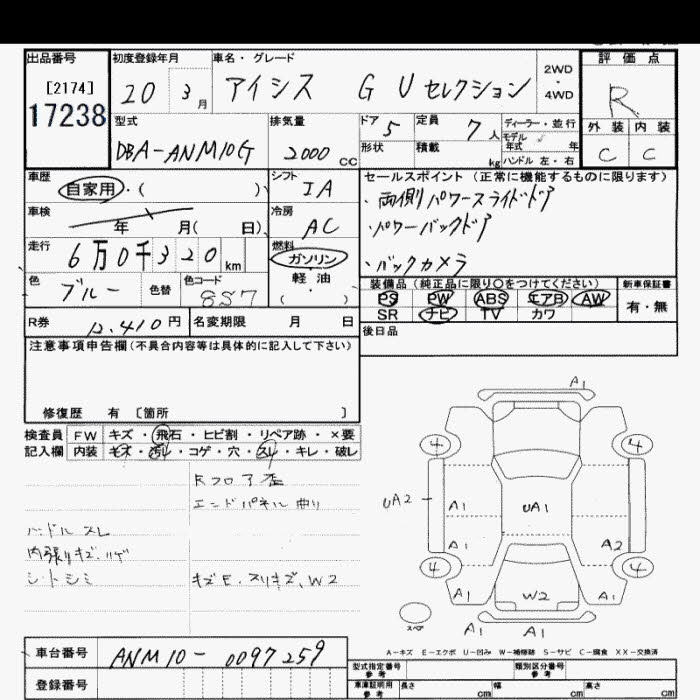 出品番号
[2174]
17238
初度登録年月
20 3月
車名・グレード
アイシス G Uセレクション
2WD
・
4WD
評価点
R
外装 内装
C C
型式
DBA-ANM10G
排気量
2000 CC
ドア
5
定員
7人
ディーラー・並行
モデル
年式 年
形状
積載
kg
ハンドル 左・右
車歴
自家用・( )
シフト
IA
セールスポイント(正常に機能するものに限ります)
・両側パワースライドドア
・パワーバックドア
・バックカメラ
車検
年 月( 日)
冷房
AC
走行
6万0千320km
燃料
ガソリン
・
軽油
( )
色
ブルー
色替
色コード
8S7
装備品(純正品に限り○をつけてください)
新車保証書
PS PW ABS エアB AW
有・無
SR ナビ TV カワ
R券
12,410円
名変期限 月 日
後日品
注意事項申告欄(不具合内容等は具体的に記入して下さい)
修復歴 有 〔箇所 〕
検査員
記入欄
FW キズ・飛石・ヒビ割・リペア跡・×要
内装 キズ・汚レ・コゲ・穴・スレ・キレ・破レ
Rフロア歪
エンドパネル曲り
ハンドルスレ
内張りキズ、ハゲ
シートシミ
キズE、スリキズ、W2
A1
4
4
UA2
A1
UA1
A1
A2
4
4
A1
W2
A1
スペア
A1
A1
A-キズ E-エクボ U-凹み W-補修跡 S-サビ C-腐食 XX-交換済
車台番号
ANM10-0097259
登録番号
型式指定番号
参考
類別区分番号
参考
車庫証明用
参考
長さ cm
幅 cm
高さ cm